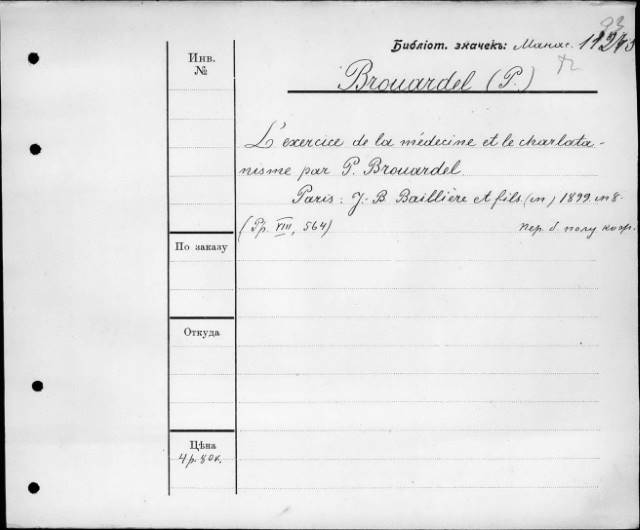 Библіот. значекъ: Манас.
Инв.
№
Brouardel (P.)
L'exercice de la médecine et le charlata-
nisme par P. Brouardel.
Paris: J.-B. Baillière et fils. (in) 1899. in 8.
(Пр. VIII, 564)
По заказу
Откуда
Цѣна
4 р. 80 к.